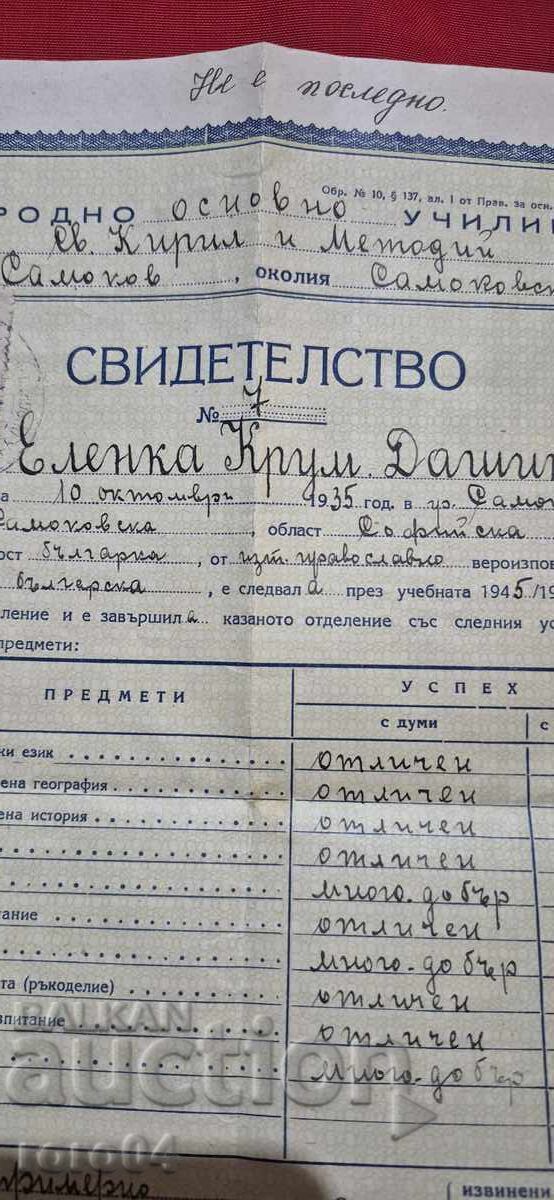 Не е последно.
Обр. № 10, § 137, ал. I от Прав. за осн.
РОДНО основно УЧИЛИ
Св. Кирил и Методий
Самоков, околия Самоковс
СВИДЕТЕЛСТВО
№ 7
Еленка Крум. Дашин
на 10 октомври 1935 год. в гр. Само
Самоковска, област Софийска
ост българка, от изт. православно вероизпов
българска, е следвала през учебната 1945/19
ление и е завършила казаното отделение със следния ус
предмети:
ПРЕДМЕТИ УСПЕХ
с думи с
ки език отличен
ена география отличен
ена история отличен
отличен
много-добър
тание отличен
много-добър
та (ръкоделие) отличен
зпитание отличен
много-добър
БАЛКАН
auction
гого04
Примерно
(извинени